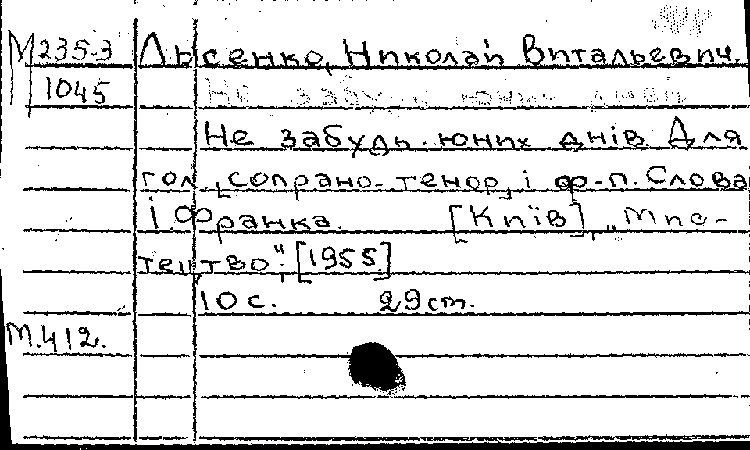 М235-3 Лысенко, Николай Витальевич.
1045 Не забудь юних дней
Не забудь юних днів Для
гол. [сопрано-тенор] і ф-п. Слова
І. Франка. [Київ], "Мис-
тецтво", [1955]
10 с. 29 см.
М.412.